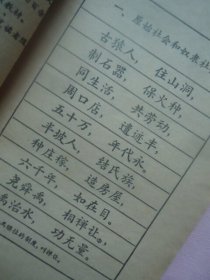 一、原始社会和奴隶社
古猿人，住山洞，
制石器，保火种，
同生活，共劳动，
周口店，遗迹丰，
五十万，年代永。
半坡人，结氏族，
种庄稼，造房屋，
六千年，如在目。
尧舜禹，相禅让。
禹治水，功无量。